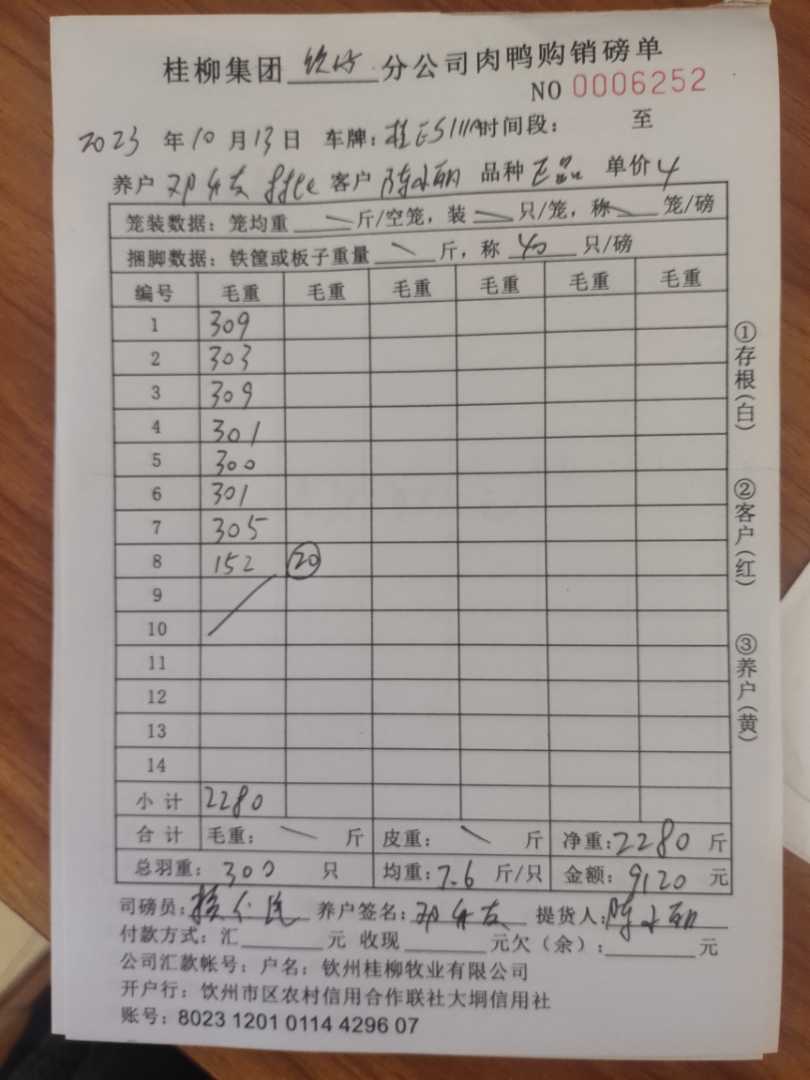 桂柳集团 钦州 分公司肉鸭购销磅单
NO 0006252
2023 年 10 月 13 日 车牌: 时间段: 至
养户 客户 品种 正品 单价 4
笼装数据: 笼均重 斤/空笼, 装 只/笼, 称 笼/磅
捆脚数据: 铁筐或板子重量 斤, 称 40 只/磅
编号 毛重 毛重 毛重 毛重 毛重 毛重
1 309
2 303
3 309
4 301
5 300
6 301
7 305
8 152 20
9
10
11
12
13
14
小计 2280
合计 毛重: 斤 皮重: 斤 净重: 2280 斤
总羽重: 300 只 均重: 7.6 斤/只 金额: 9120 元
司磅员: 养户签名: 提货人:
付款方式: 汇 元 收现 元欠(余): 元
公司汇款帐号: 户名: 钦州桂柳牧业有限公司
开户行: 钦州市区农村信用合作联社大垌信用社
账号: 8023 1201 0114 4296 07
①存根(白)
②客户(红)
③养户(黄)